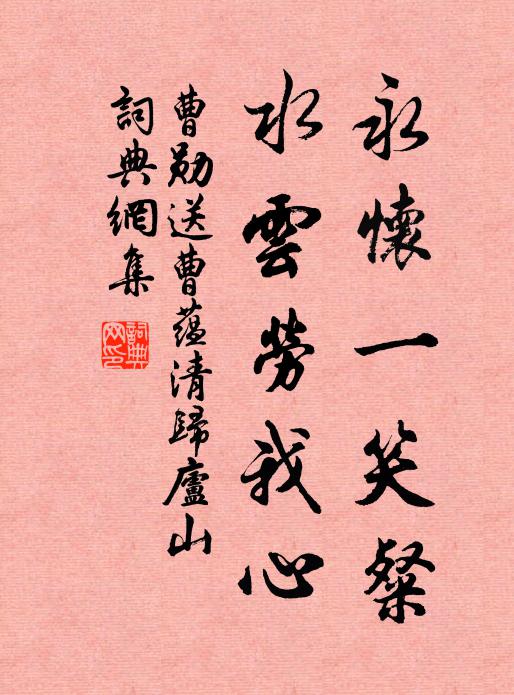 永懷一笑粲
水雲勞我心
曹勛送曹蘊清歸廬山
詞典網集
詞典網印